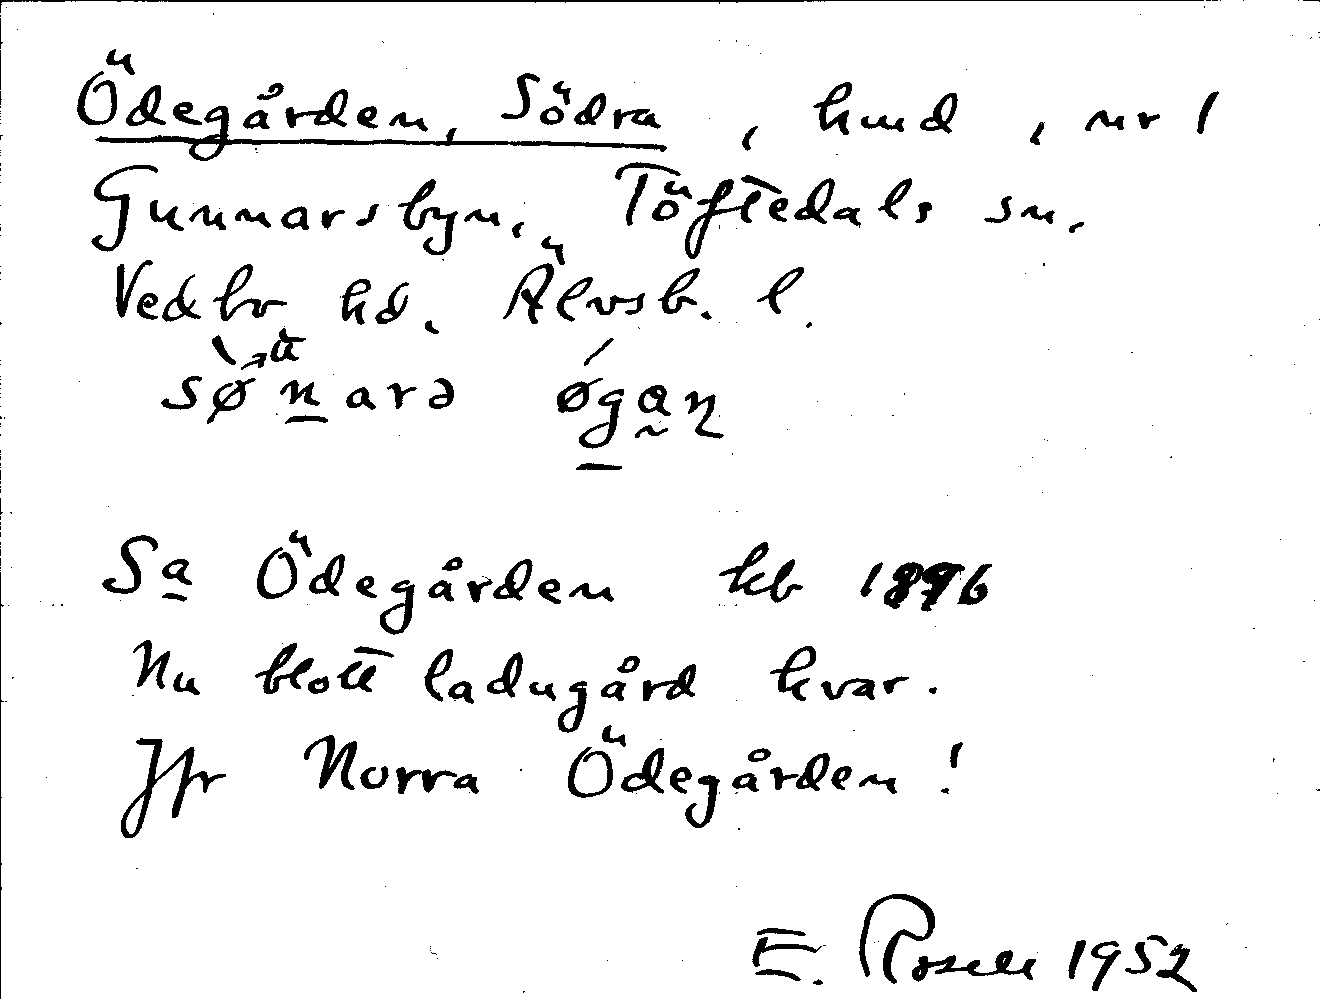 Ödegården, Södra, hmd, nr 1
Gunnarsbyn, Töftedals sn.
Vedbo hd. Älvsb. l.
sø̀narə øgan
Sa Ödegården kb 1896
Nu blott ladugård kvar.
Jfr Norra Ödegården!
E. Rosell 1952